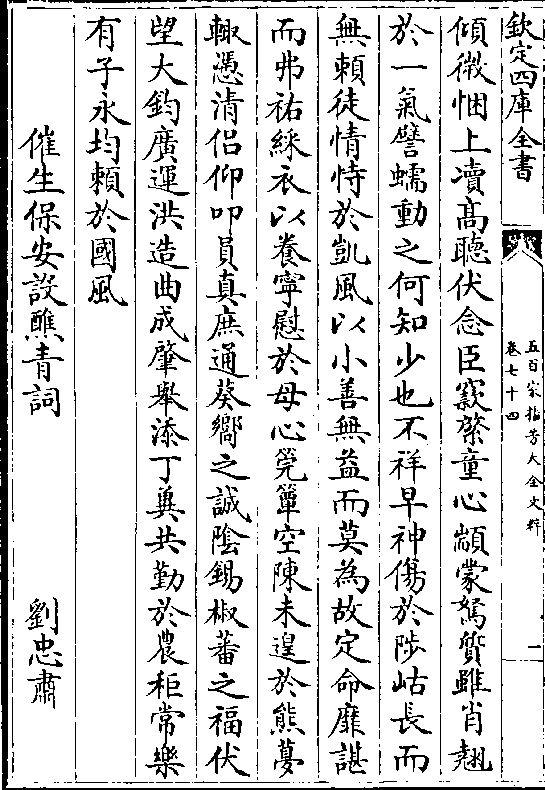 欽定四庫全書
五百家播芳大全文粹
卷七十四
一
傾微悃上凟髙聽伏念臣竅啓童心顓蒙駑質雖肖翹
於一氣譬蠕動之何知少也不祥早神傷於陟岵長而
無頼徒情恃於凱風以小善無益而莫為故定命靡諶
而弗祐綵衣以養寧慰於母心筦簟空陳未遑於熊夢
輙慿清侣仰叩員真庶通葵嚮之誠陰錫椒蕃之福伏
望大鈞廣運洪造曲成肇舉添丁兾共勤於農秬常樂
有子永均頼於國風
催生保安設醮青詞
劉忠肅